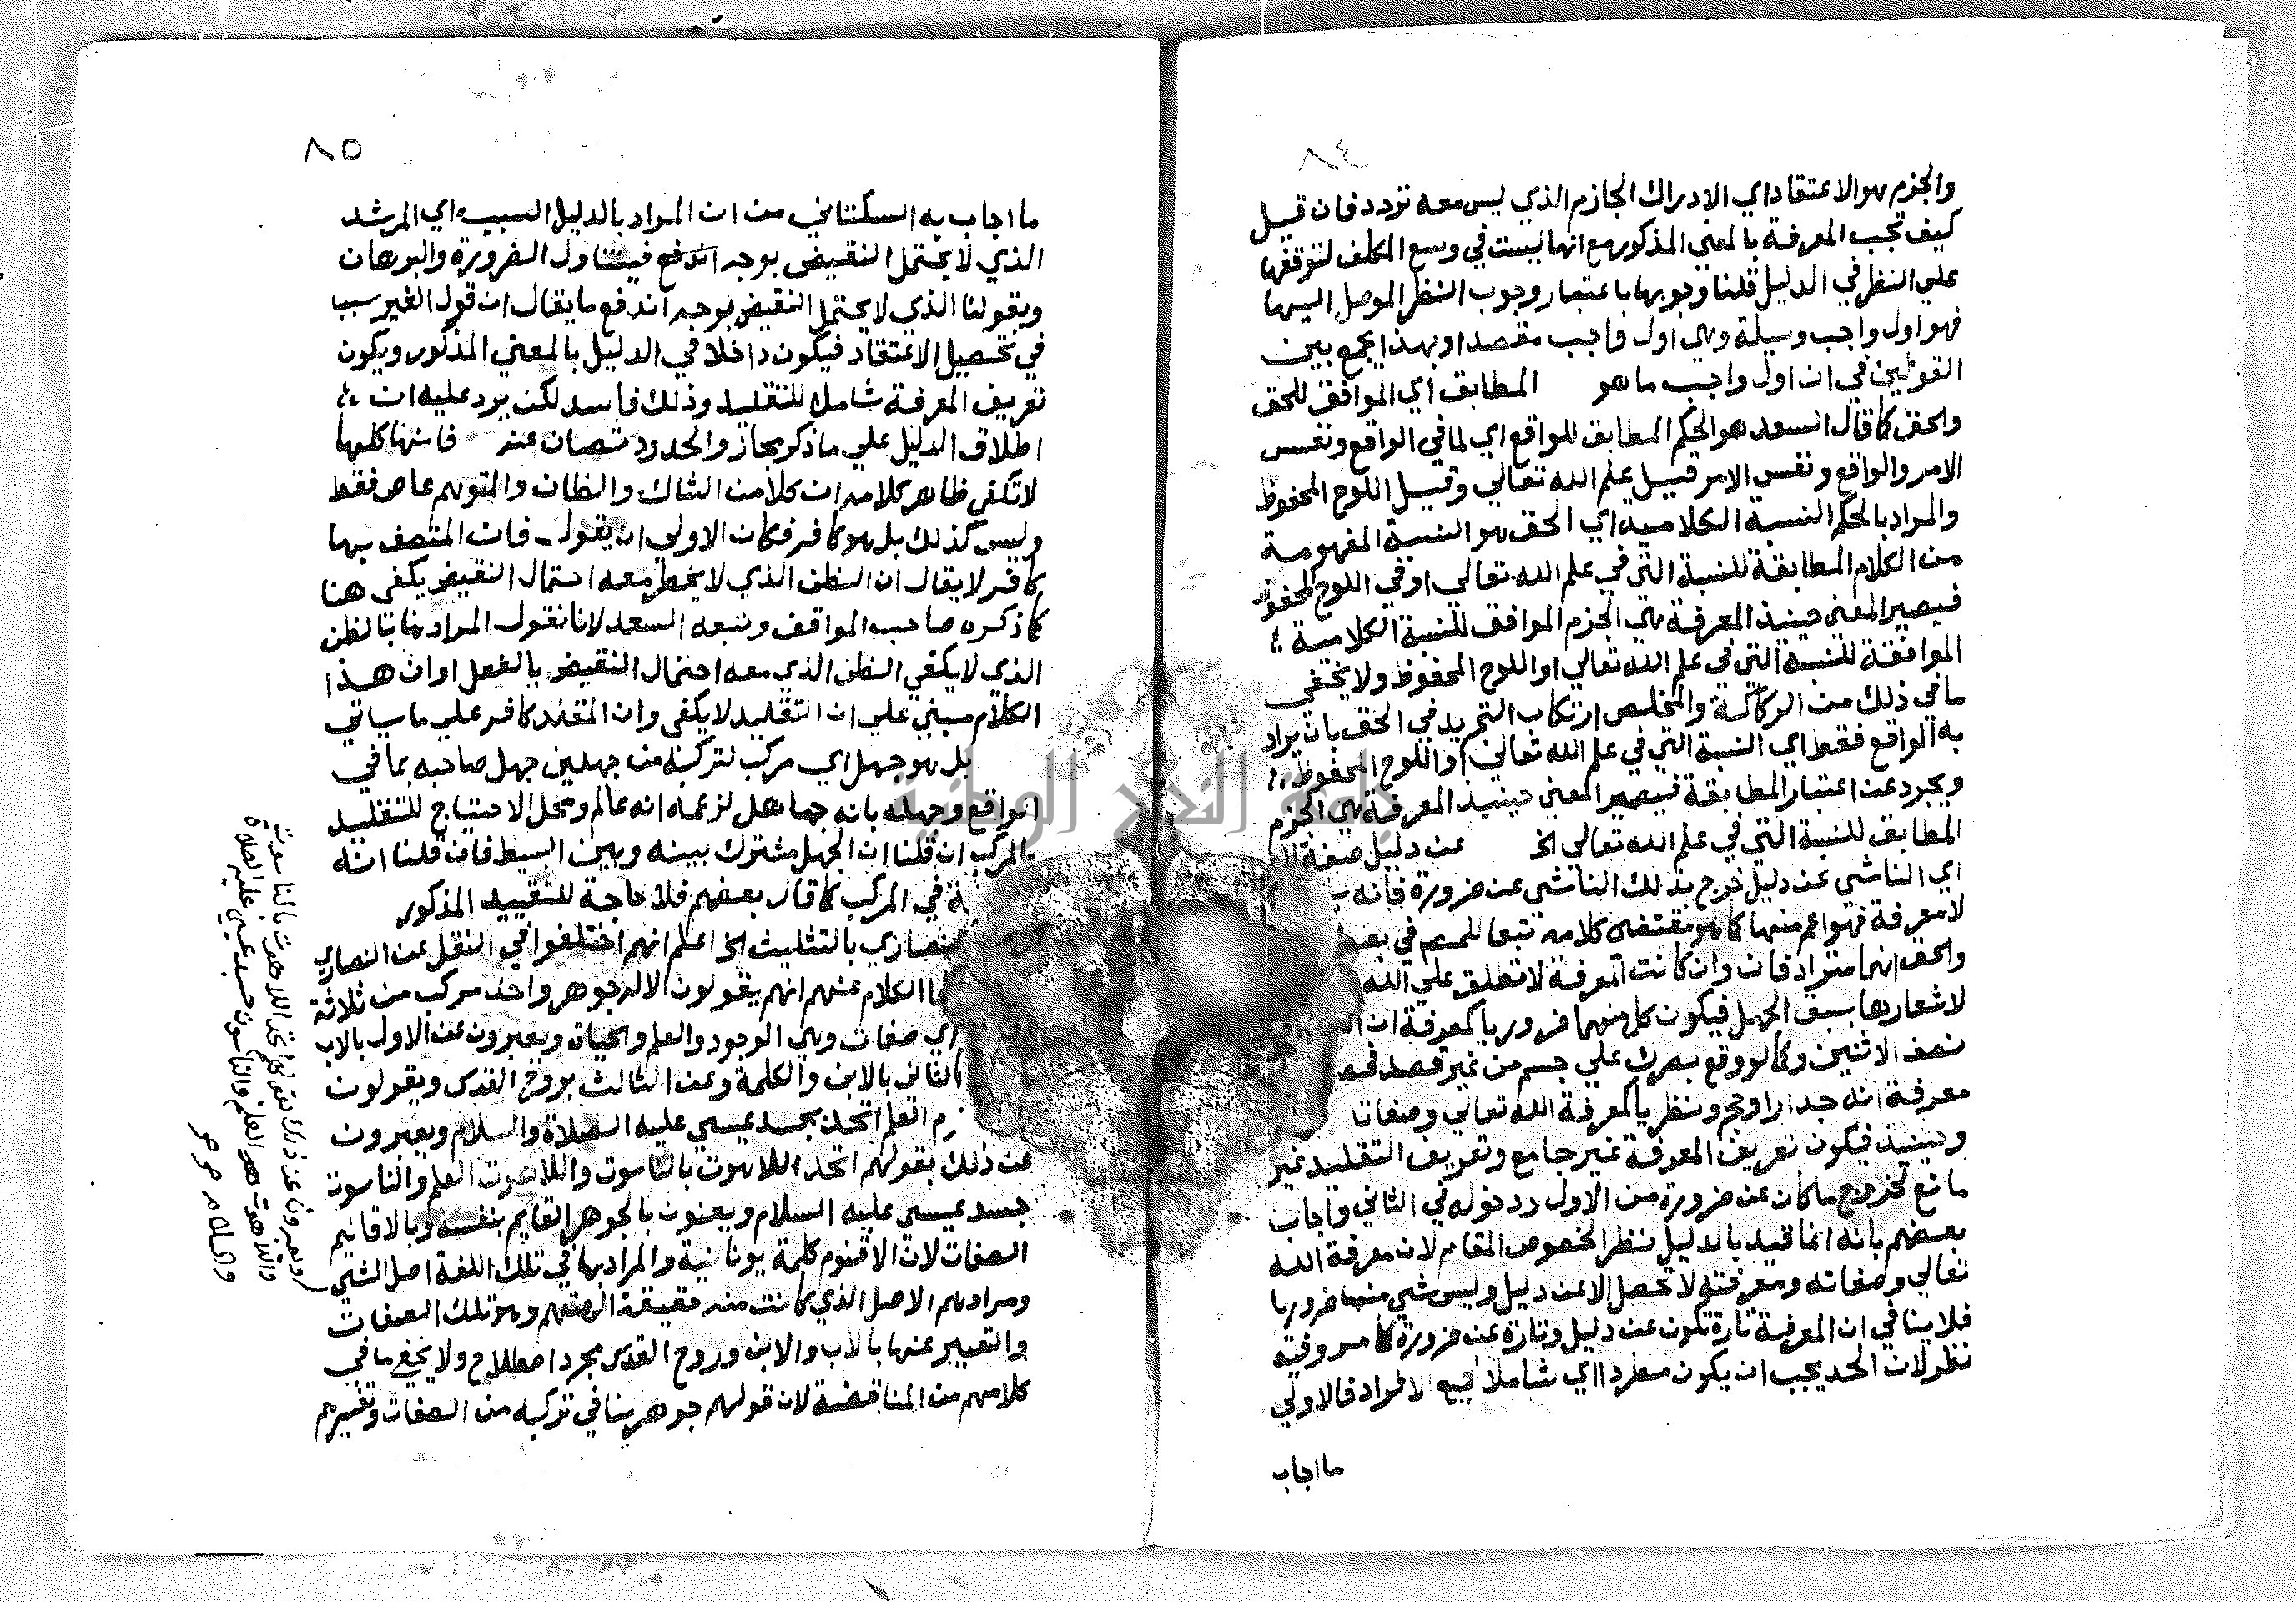 ٨٤
والجزم هو الاعتقاد اي الادراك الجازم الذي ليس معه تردد فان قيل
كيف تجب المعرفة بالمعني المذكور مع انها ليست في وسع المكلف لتوقفها
علي النظر في الدليل قلنا وجوبها باعتبار وجوب النظر الموصل اليها
فهو اول واجب وسيلة وهي اول واجب مقصدا وبهذا يجمع بين
القولين في ان اول واجب ما هو المطابق اي الموافق للحق
والحق كما قال السعد هو الحكم المطابق للواقع اي لما في الواقع ونفس
الامر والواقع ونفس الامر قيل علم الله تعالي وقيل اللوح المحفوظ
والمراد بالحكم النسبة الكلامية اي الحق هو النسبة المفهومة
من الكلام المطابقة للنسبة التي في علم الله تعالي او في اللوح المحفوظ
فيصير المعني حينيذ المعرفة هي الجزم الموافق للنسبة الكلامية
الموافقة للنسبة التي في علم الله تعالي او اللوح المحفوظ ولا يخفي
ما في ذلك من الركاكة والمخلص ارتكاب التجريد في الحق بان يراد
به الواقع فقط اي النسبة التي في علم الله تعالي او اللوح المحفوظ
ويجرد عن اعتبار المطابقة فيصير المعني حينيذ المعرفة هي الجزم
المطابق للنسبة التي في علم الله تعالي الخ عن دليل صفة
اي الناشي عن دليل خرج بذلك الناشي عن ضرورة فانه
لا معرفة فهو اعم منها كما هو مقتضي كلامه تبعا في
والحق انهما مترادفان وان كانت المعرفة لا تطلق علي الله
لاشعارها بسبق الجهل فيكون كل منهما ضروريا كمعرفة ان
نصف الاثنين وكما لو وقع بصرك علي جسم من غير قصد
معرفة انه جدار او حجر ونظريا كمعرفة الله تعالي وصفات
وحينيذ فيكون تعريف المعرفة غير جامع وتعريف التقليد غير
مانع لخروج ما كان عن ضرورة من الاول ودخوله في الثاني واجاب
بعضهم بانه انما قيد بالدليل نظرا لخصوص المقام لان معرفة الله
تعالي وصفاته ومعرفته لا تحصل الا عن دليل وليس شي منها ضروريا
فلا ينافي ان المعرفة تارة تكون عن دليل وتارة عن ضرورة كما مر وفيه
نظر لان الحد يجب ان يكون مطردا اي شاملا لجميع الافراد فالاولي
ما اجاب
٨٥
ما اجاب به السكتاني من ان المراد بالدليل السبب اي المرشد
الذي لا يحتمل النقيض بوجه اندفع فيتناول الضرورة والبرهان
وبقولنا الذي لا يحتمل النقيض بوجه اندفع ما يقال ان قول الغير سببا
في تحصيل الاعتقاد فيكون داخلا في الدليل بالمعني المذكور ويكون
تعريف المعرفة شاملا للتقليد وذلك فاسد لكن يرد عليه ان
اطلاق الدليل علي ما ذكر مجاز والحدود تصان عنه فانها كلها
لا تكفي ظاهر كلامه ان كلا من الشاك والظان والمتوهم عاص فقط
وليس كذلك بل هو كافر فكان الاولي ان يقول فان المتصف بها
كافر لا يقال ان الظن الذي لا يخطر معه احتمال النقيض يكفي هنا
كما ذكره صاحب المواقف وتبعه السعد لانا نقول المراد هنا بالظن
الذي لا يكفي الظن الذي معه احتمال النقيض بالفعل او ان هذا
الكلام مبني علي ان التقليد لا يكفي وان المقلد كافر علي ما سياتي
بل هو جهل اي مركب لتركبه من جهلين جهل صاحبه بما في
الواقع وجهله بانه جاهل لزعمه انه عالم ومحل الاحتياج للتقليد
بالمركب ان قلنا ان الجهل مشترك بينه وبين البسيط فان قلنا انه
في المركب كما قال بعضهم فلا حاجة للتقييد المذكور
بالتثليث الخ اعلم انهم اختلفوا في النقل عن النصاري
الكلام عنهم انهم يقولون الاله جوهر واحد مركب من ثلاثة
اي صفات وهي الوجود والعلم والحياة ويعبرون عن الاول بالاب
الثاني بالابن والكلمة وعن الثالث بروح القدس ويقولون
العلم اتحد بجسد عيسي عليه الصلاة والسلام ويعبرون
عن ذلك بقولهم اتحد اللاهوت بالناسوت واللاهوت العلم والناسوت
جسد عيسي عليه السلام ويعنون بالجوهر القايم بنفسه وبالاقانيم
الصفات لان الاقنوم كلمة يونانية والمراد بها في تلك اللغة اصل الشي
ومرادهم الاصل الذي كانت منه حقيقة الهتهم وهو تلك الصفات
والتعبير عنها بالاب والابن وروح القدس مجرد اصطلاح ولا يخفي ما في
كلامهم من المناقضة لان قولهم جوهر ينافي تركبه من الصفات وتفسيرهم
ويعبرون عن ذلك بقولهم اتحد اللاهوت بالناسوت
واللاهوت هو العلم والناسوت جسد عيسي عليه الصلاة
والسلام